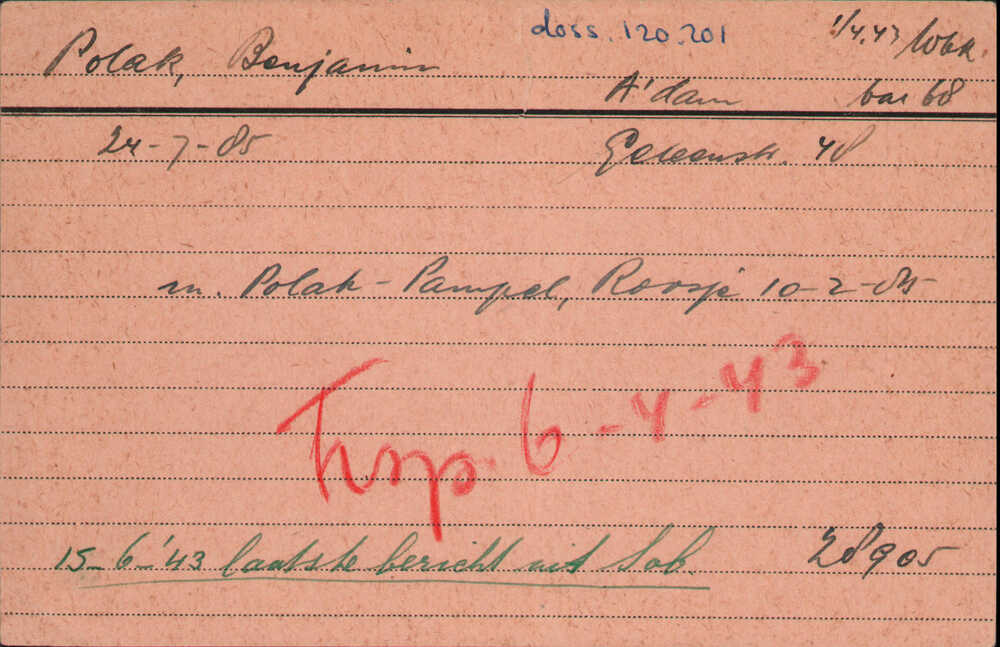 doss. 120.201
1/4.43 Wbk.
Polak, Benjamin
A'dam bar 68
24-7-85 48
m. Polak-Pampel, Roosje 10-2-85
Trsp. 6-4-43
15-6-'43 laatste bericht uit Sob.
28905